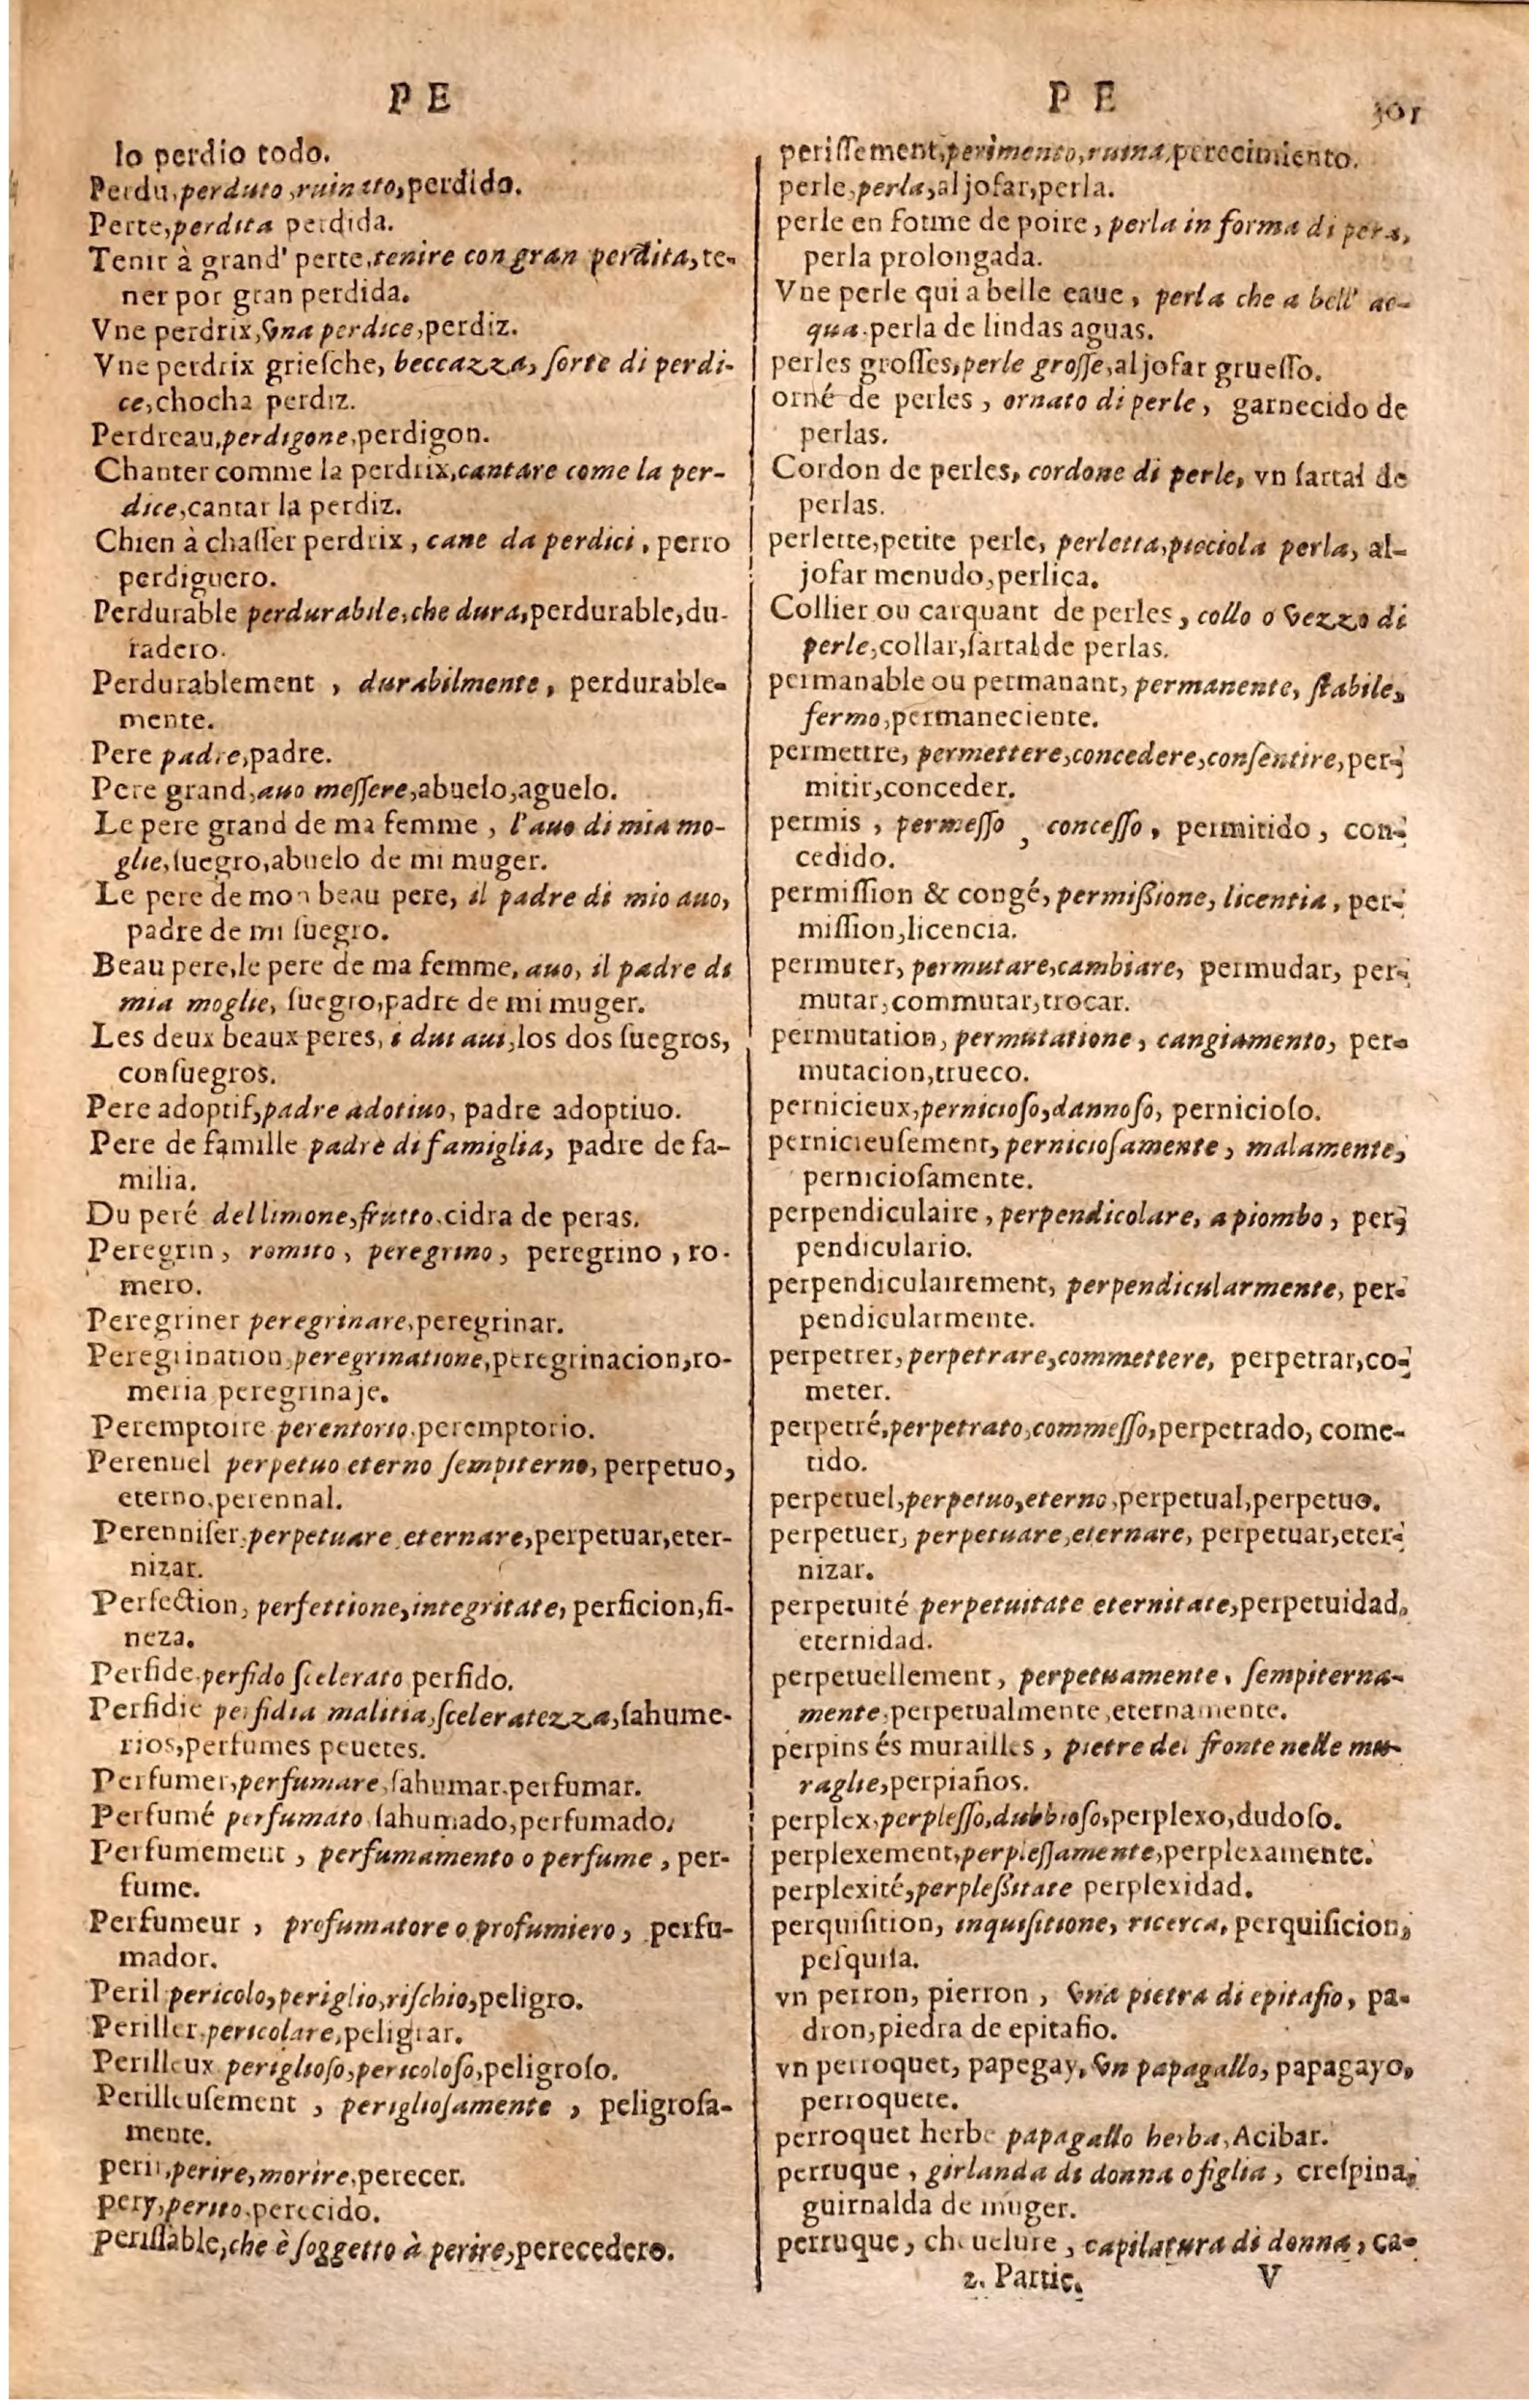 P E
lo perdio todo.
Perdu, perduto, ruinato, perdido.
Perte, perdita perdida.
Tenir à grand' perte, tenire con gran perdita, te-
ner por gran perdida.
Vne perdrix, vna perdice, perdiz.
Vne perdrix grieſche, beccazza, ſorte di perdi-
ce, chocha perdiz.
Perdreau, perdigone, perdigon.
Chanter comme la perdrix, cantare come la per-
dice, cantar la perdiz.
Chien à chaſſer perdrix, cane da perdici, perro
perdiguero.
Perdurable perdurabile, che dura, perdurable, du-
radero.
Perdurablement, durabilmente, perdurable-
mente.
Pere padre, padre.
Pere grand, auo meſſere, abuelo, aguelo.
Le pere grand de ma femme, l'auo di mia mo-
glie, ſuegro, abuelo de mi muger.
Le pere de mon beau pere, il padre di mio auo,
padre de mi ſuegro.
Beau pere, le pere de ma femme, auo, il padre di
mia moglie, ſuegro, padre de mi muger.
Les deux beaux peres, i dui aui, los dos ſuegros,
conſuegros.
Pere adoptif, padre adotiuo, padre adoptiuo.
Pere de famille padre di famiglia, padre de fa-
milia.
Du peré del limone, frutto, cidra de peras.
Peregrin, romito, peregrino, peregrino, ro-
mero.
Peregriner peregrinare, peregrinar.
Peregrination, peregrinatione, peregrinacion, ro-
meria peregrinaje.
Peremptoire perentorio, peremptorio.
Perennel perpetuo eterno ſempiterno, perpetuo,
eterno, perennal.
Perenniſer, perpetuare, eternare, perpetuar, eter-
nizar.
Perfection, perfettione, integritate, perficion, fi-
neza.
Perfide, perfido ſcelerato perfido.
Perfidie perfidia malitia, ſceleratezza, ſahume-
rios, perfumes peuetes.
Perfumer, perfumare, ſahumar, perfumar.
Perfumé perfumato ſahumado, perfumado.
Perfumement, perfumamento o perfume, per-
fume.
Perfumeur, profumatore o profumiero, perfu-
mador.
Peril pericolo, periglio, riſchio, peligro.
Periller, pericolare, peligrar.
Perilleux periglioſo, pericoloſo, peligroſo.
Perilleuſement, periglioſamente, peligroſa-
mente.
perir, perire, morire, perecer.
pery, perito, perecido.
periſſable, che è ſoggetto à perire, perecedero.
P E 301
periſſement, perimento, ruina, perecimiento.
perle, perla, aljofar, perla.
perle en forme de poire, perla in forma di pera,
perla prolongada.
Vne perle qui a belle eaue, perla che a bell' ac-
qua, perla de lindas aguas.
perles groſſes, perle groſſe, aljofar grueſſo.
orné de perles, ornato di perle, garnecido de
perlas.
Cordon de perles, cordone di perle, vn ſartal de
perlas.
perlette, petite perle, perletta, picciola perla, al-
jofar menudo, perlica.
Collier ou carquant de perles, collo o vezzo di
perle, collar, ſartal de perlas.
permanable ou permanant, permanente, ſtabile,
fermo, permaneciente.
permettre, permettere, concedere, conſentire, per-
mitir, conceder.
permis, permeſſo, conceſſo, permitido, con-
cedido.
permiſſion & congé, permißione, licentia, per-
miſſion, licencia.
permuter, permutare, cambiare, permudar, per-
mutar, commutar, trocar.
permutation, permutatione, cangiamento, per-
mutacion, trueco.
pernicieux, pernicioſo, dannoſo, pernicioſo.
pernicieuſement, pernicioſamente, malamente,
pernicioſamente.
perpendiculaire, perpendicolare, a piombo, per-
pendiculario.
perpendiculairement, perpendicularmente, per-
pendicularmente.
perpetrer, perpetrare, commettere, perpetrar, co-
meter.
perpetré, perpetrato, commeſſo, perpetrado, come-
tido.
perpetuel, perpetuo, eterno, perpetual, perpetuo.
perpetuer, perpetuare, eternare, perpetuar, eter-
nizar.
perpetuité perpetuitate eternitate, perpetuidad,
eternidad.
perpetuellement, perpetuamente, ſempiterna-
mente, perpetualmente, eternamente.
perpins és murailles, pietre del fronte nelle mu-
raglie, perpiaños.
perplex, perpleſſo, dubbioſo, perplexo, dudoſo.
perplexement, perpleſſamente, perplexamente.
perplexité, perpleßitate perplexidad.
perquiſition, inquiſitione, ricerca, perquiſicion,
peſquiſa.
vn perron, pierron, vna pietra di epitafio, pa-
dron, piedra de epitafio.
vn perroquet, papegay, vn papagallo, papagayo,
perroquete.
perroquet herbe papagallo herba, Acibar.
perruque, girlanda di donna o figlia, creſpina,
guirnalda de muger.
perruque, cheuelure, capilatura di donna, ca-
2. Partie. V